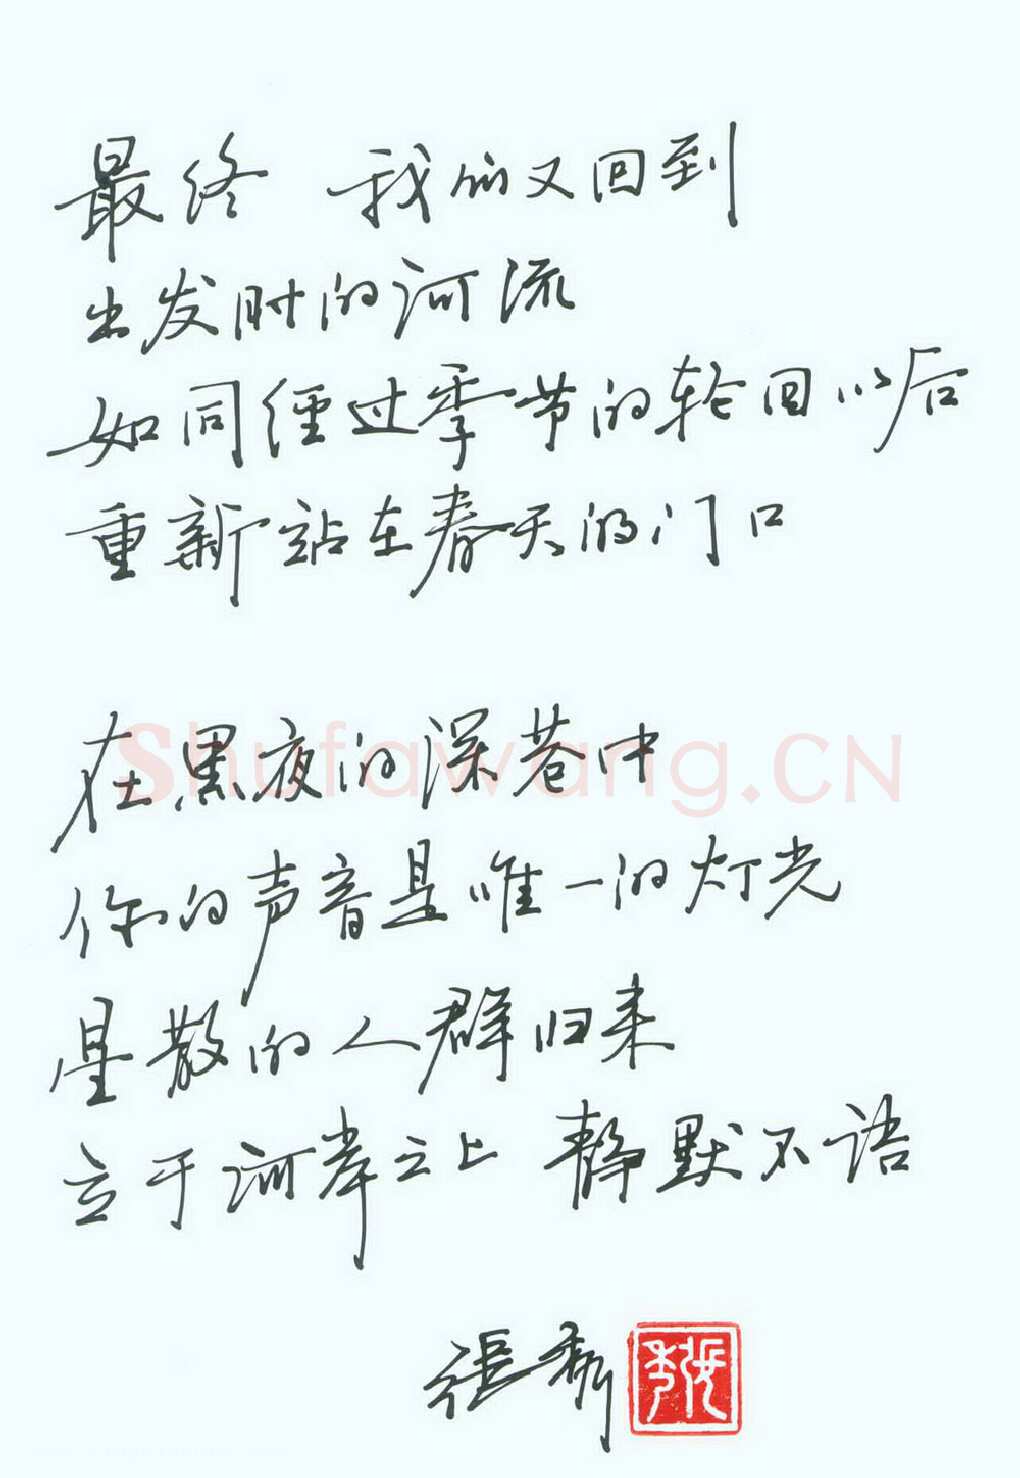 最终 我们又回到
出发时的河流
如同经过季节的轮回以后
重新站在春天的门口
在黑夜的深巷中
Shufawang.CN
你的声音是唯一的灯光
星散的人群归来
立于河岸之上 静默不语
张秀